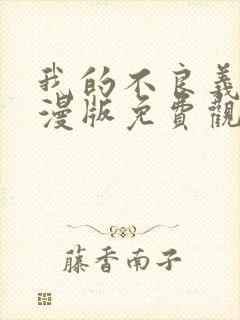 我的不良義
漫版免費觀
藤香南子